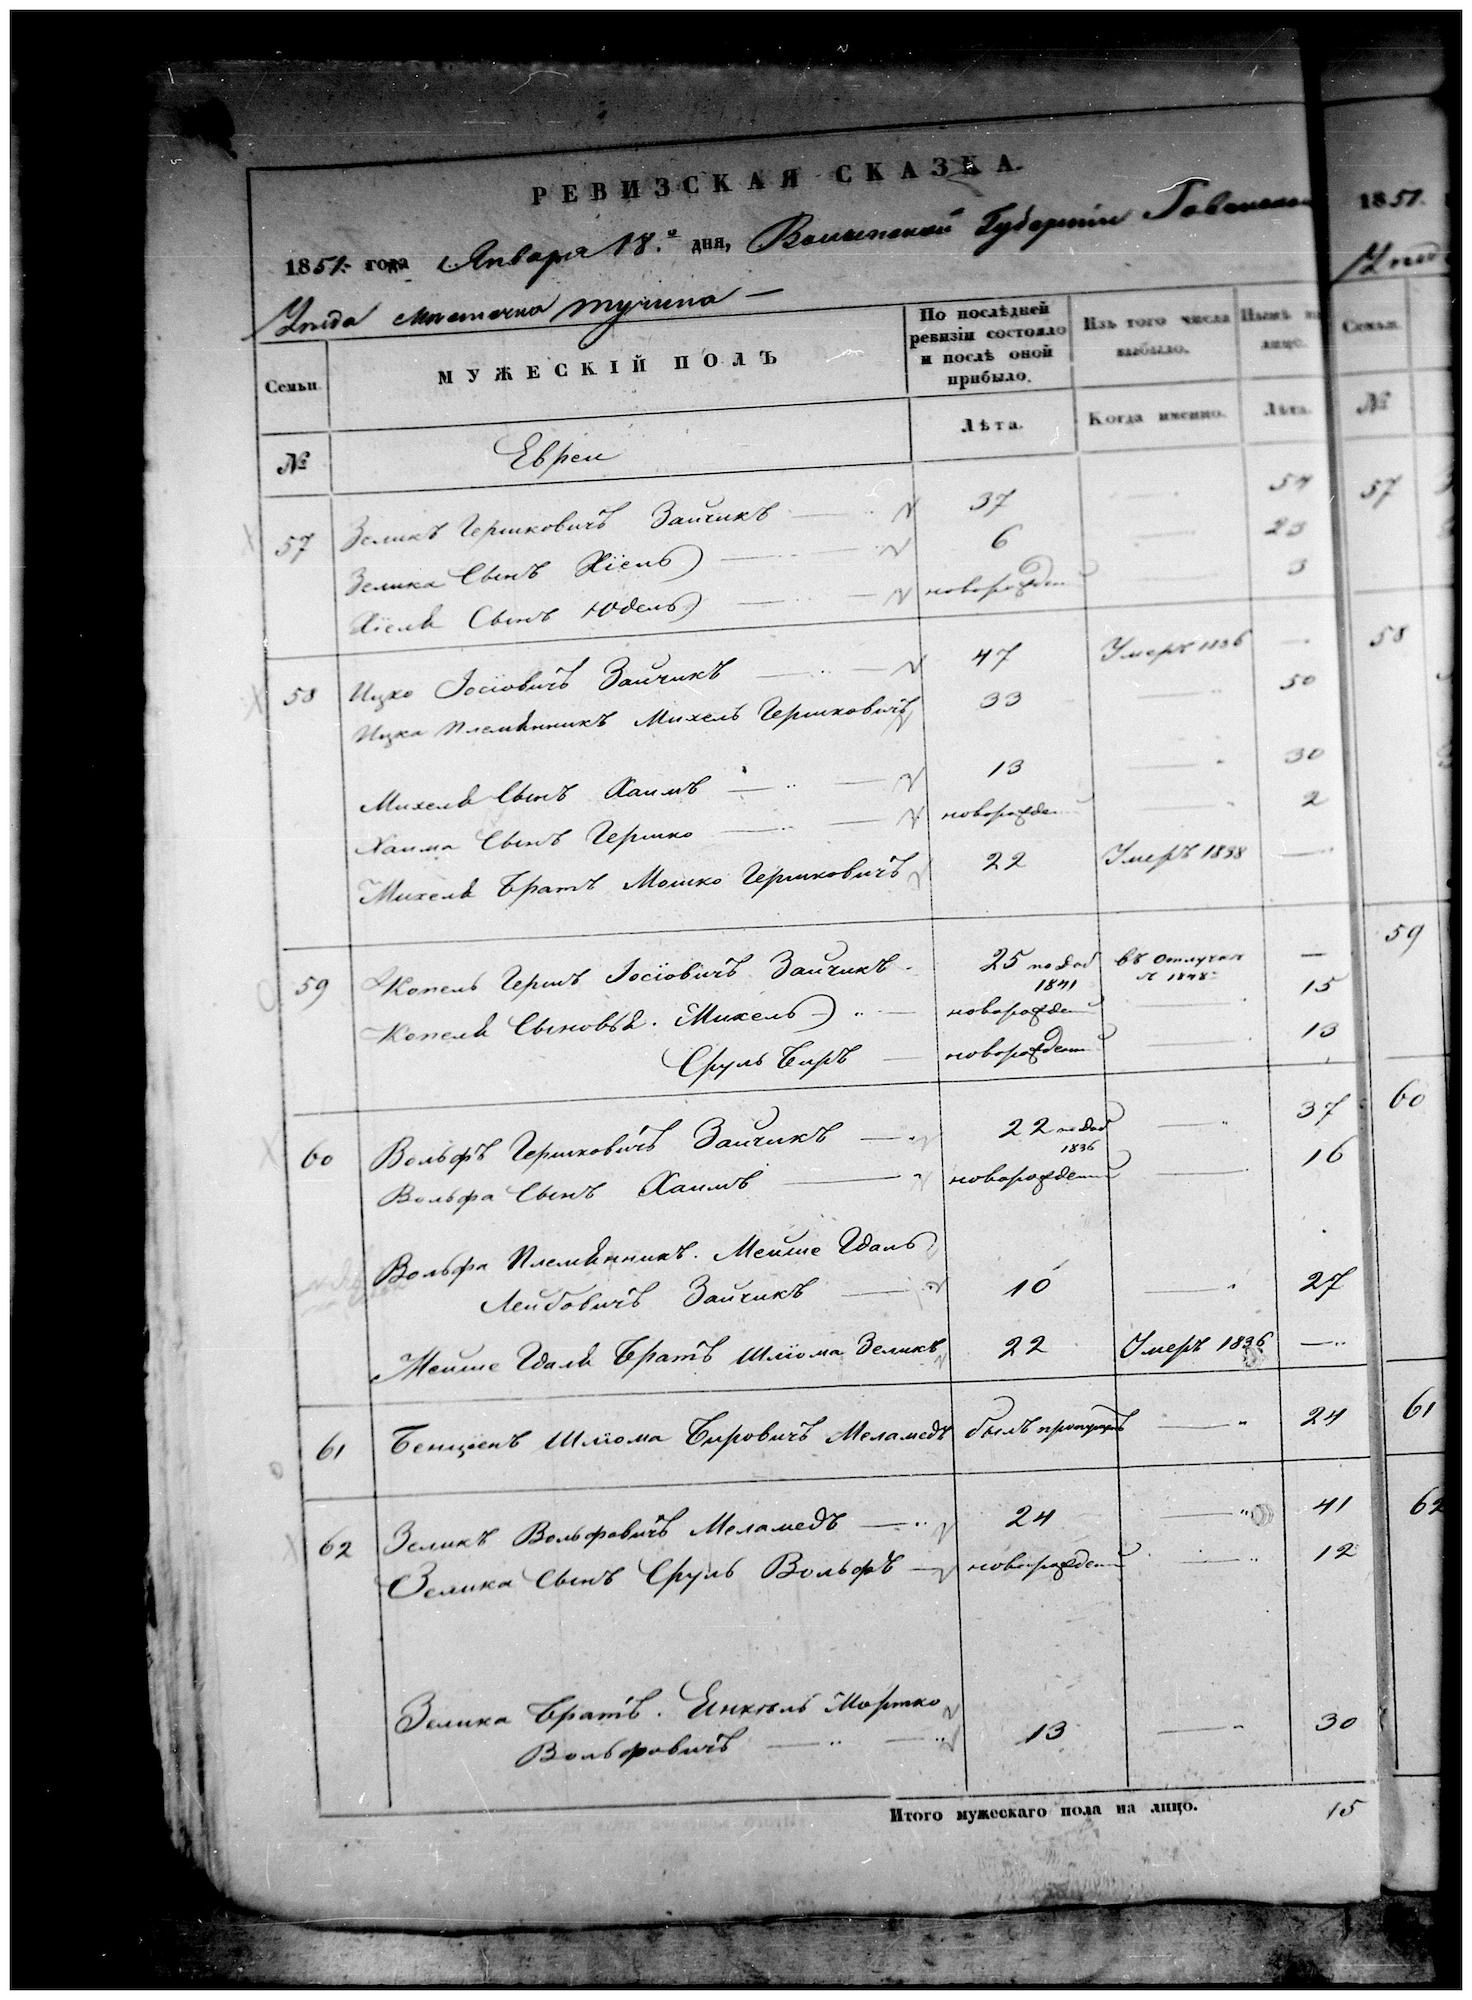 РЕВИЗСКАЯ СКАЗКА.
1851. года Января 18.го дня, Волынской Губерніи Ровенскаго 1851.
Уѣзда мѣстечка Тучина —
Семьи. МУЖЕСКІЙ ПОЛЪ По послѣдней ревизіи состояло и послѣ оной прибыло. Изъ того числа выбыло. Нынѣ на лицо. Семьи.
№ Евреи Лѣта. Когда именно. Лѣта. №
57 Зеликъ Гершковичъ Зайчикъ 37 — 54 57
Зелика Сынъ Хіель 6 — 23
Хіеля Сынъ Юдель новорожден — 3
58 Ицко Іосіовичъ Зайчикъ 47 Умеръ 1836 — 58
Ицка Племянникъ Михель Гершковичъ 33 50
Михеля Сынъ Хаимъ 13 — 30
Хаима Сынъ Гершко новорожден 2
Михеля Братъ Мошко Гершковичъ 22 Умеръ 1838 —
59 Копель Гершъ Іосіовичъ Зайчикъ 25 по доб 1841 въ отлучкѣ 1848 — 59
Копеля Сыновья. Михель новорожден — 15
Сруль Беръ новорожден — 13
60 Вольфъ Гершковичъ Зайчикъ 22 по доб 1836 — 37 60
Вольфа Сынъ Хаимъ новорожден — 16
Вольфа Племянникъ. Мейше Гдаль
Лейбовичъ Зайчикъ 10 — 27
Мейше Гдаля Братъ Шліома Зеликъ 22 Умеръ 1836 —
61 Бенціенъ Шліома Беровичъ Меламедъ былъ пропущенъ — 24 61
62 Зеликъ Вольфовичъ Меламедъ 24 — 41 62
Зелика Сынъ Сруль Вольфъ новорожден — 12
Зелика Братъ. Янкель Мортко
Вольфовичъ 13 — 30
Итого мужескаго пола на лицо. 15